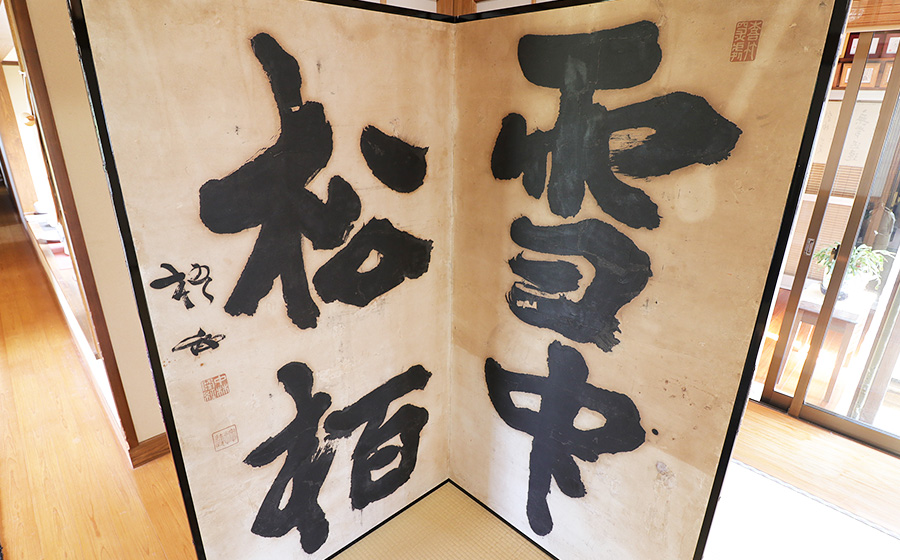 雪中
松柏